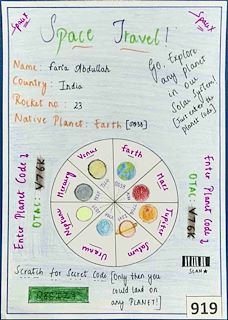 SpaceX
SpaceX
Space Travel!
Name: Faria Abdullah
Country: India
Rocket no: 23
Native Planet: Earth
Go, Explore
any Planet
in our
Solar System!
[Just enter the
Planet code]
Enter Planet Code
OTAC: V76K
Enter Planet Code
OTAC: V76K
Venus
Earth
Mars
Jupiter
Saturn
Uranus
Neptune
Mercury
SCAN
Scratch for Secret Code [Only then you
could land on
any PLANET!]
919